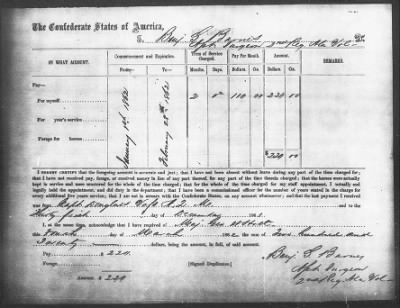 The Confederate States of America,
To Benj. S. Barnes
Asst Surgeon 2nd Reg Ala Vol Dr.
ON WHAT ACCOUNT.
Commencement and Expiration.
Term of Service Charged.
Pay Per Month.
Amount.
REMARKS.
From— To— Months. Days. Dolls. Cts. Dollars. Cts.
PAY—
For myself 2 0 110 00 220 00
For year's service
FORAGE—
For horses
January 1st 1862
February 28th 1862
$ 220 00
I HEREBY CERTIFY that the foregoing account is accurate and just; that I have not been absent without leave during any part of the time charged for;
that I have not received pay, forage, or received money in lieu of any part thereof, for any part of the time therein charged; that the horses were actually
kept in service and were mustered for the whole of the time charged; that for the whole of the time charged for my staff appointment, I actually and
legally held the appointment and did duty in the department; that I have been a commissioned officer for the number of years stated in the charge for
every additional five years service; that I am not in arrears with the Confederate States, on any account whatsoever, and that the last payment I received
was from Capt 
day of December 186
I, at the same time, acknowledge that I have received of Maj. Geo
this day of March 1862 the sum of Two hundred and
Twenty dollars, being the amount, in full, of said account.
Pay $ 220
Forage
Amount $ 220
Benj S Barnes
Asst Surgeon
2nd Reg Ala Vol